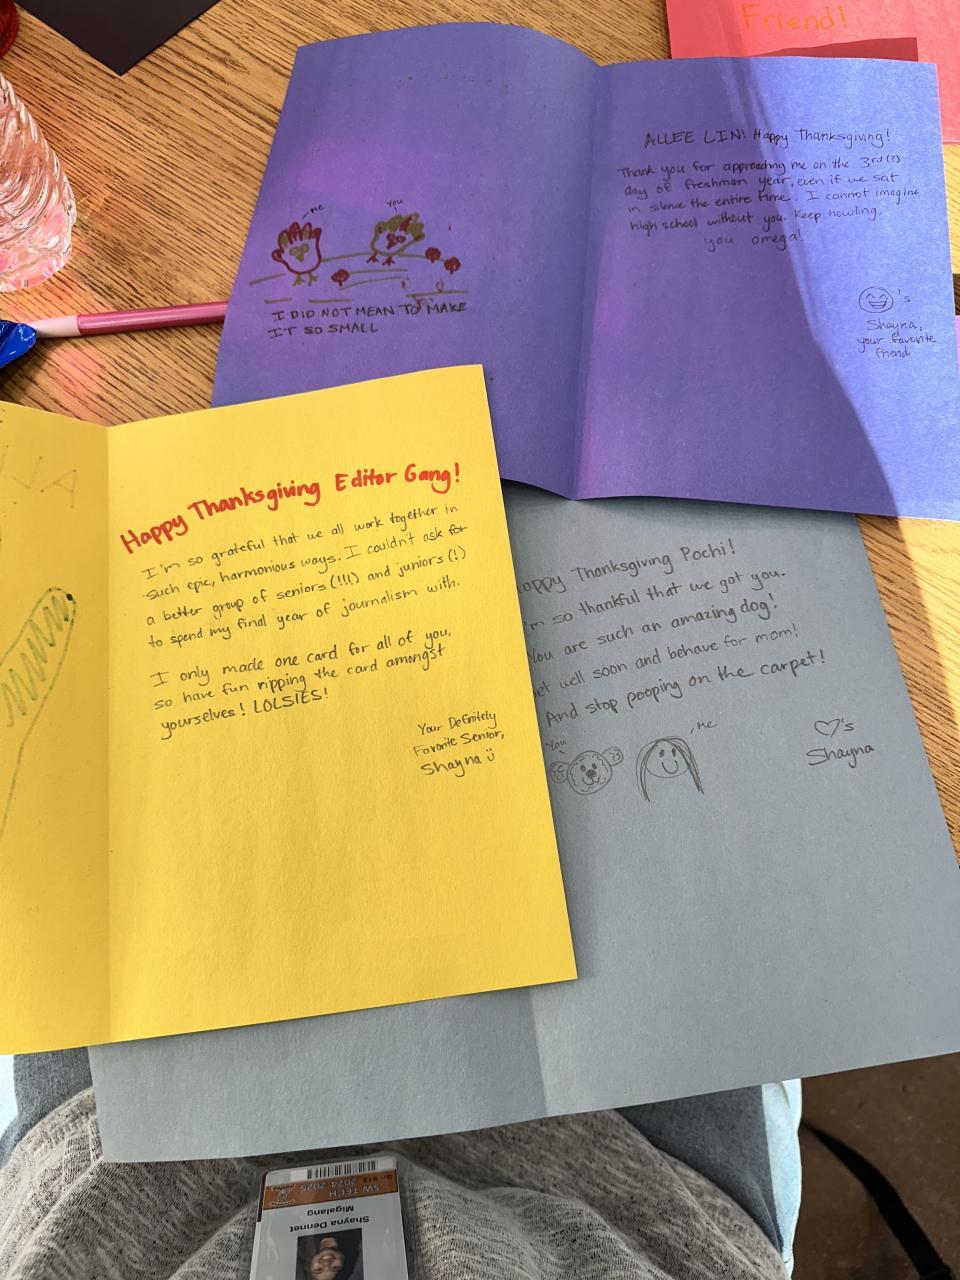 Friend!
ALLEE LIN! Happy Thanksgiving!
Thank you for approaching me on the 3rd(?)
day of freshman year, even if we sat
in silence the entire time. I cannot imagine
high school without you. Keep howling,
you omega!
's
Shayna,
your favorite
friend
ME
You
I DID NOT MEAN TO MAKE
IT SO SMALL
Happy Thanksgiving Editor Gang!
I'm so grateful that we all work together in
such epic, harmonious ways. I couldn't ask for
a better group of seniors (!!!) and juniors (!)
to spend my final year of journalism with.
I only made one card for all of you,
so have fun ripping the card amongst
yourselves! LOLSIES!
Your Definitely
Favorite Senior,
Shayna
appy Thanksgiving Pochi!
'm so thankful that we got you.
You are such an amazing dog!
et well soon and behave for mom!
And stop pooping on the carpet!
You
Me
's
Shayna
SW TECH
2024-2025
Gr: 012
Shayna Dennet
Migalang